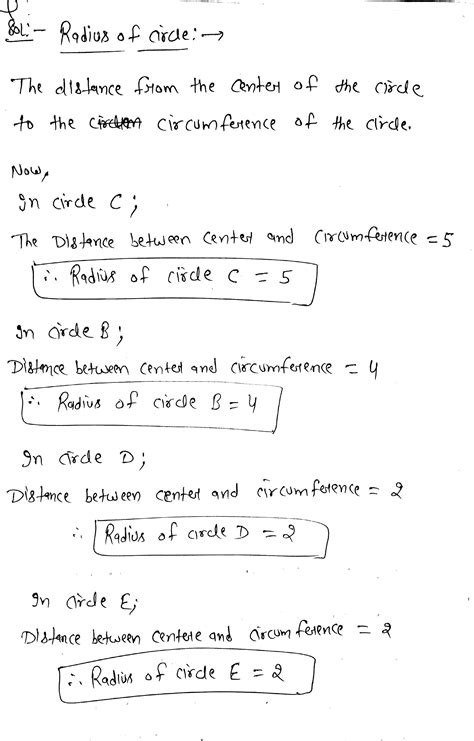 Sol:- Radius of circle:→
The distance from the center of the circle
to the circumference of the circle.
Now,
In circle C;
The Distance between center and circumference = 5
∴ Radius of circle C = 5
In circle B;
Distance between center and circumference = 4
∴ Radius of circle B = 4
In circle D;
Distance between center and circumference = 2
∴ Radius of circle D = 2
In circle E;
Distance between centere and circumference = 2
∴ Radius of circle E = 2